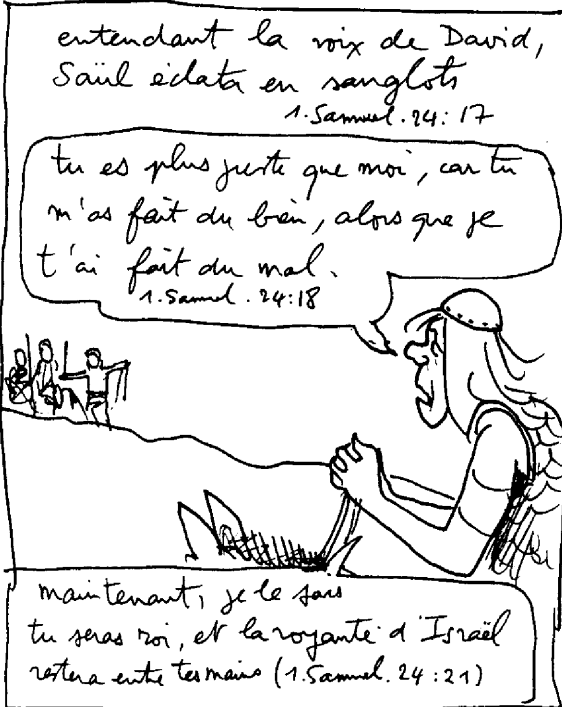 entendant la voix de David,
Saül éclata en sanglots
1. Samuel. 24: 17
tu es plus juste que moi, car tu
m'as fait du bien, alors que je
t'ai fait du mal.
1. Samuel. 24:18
maintenant, je le sais
tu seras roi, et la royauté d'Israël
restera entre tes mains (1. Samuel. 24:21)